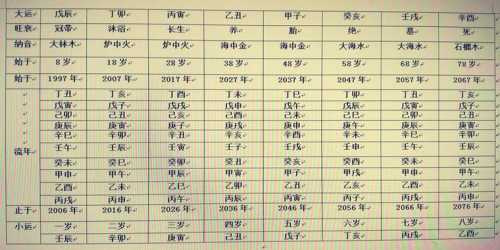 大运 戊辰 丁卯 丙寅 乙丑 甲子 癸亥 壬戌 辛酉
旺衰 冠带 沐浴 长生 养 胎 绝 墓 死
纳音 大林木 炉中火 炉中火 海中金 海中金 大海水 大海水 石榴木
始于 8岁 18岁 28岁 38岁 48岁 58岁 68岁 78岁
始于 1997年 2007年 2017年 2027年 2037年 2047年 2057年 2067年
丁丑 丁亥 丁酉 丁未 丁巳 丁卯 丁丑 丁亥
戊寅 戊子 戊戌 戊申 戊午 戊辰 戊寅 戊子
己卯 己丑 己亥 己酉 己未 己巳 己卯 己丑
庚辰 庚寅 庚子 庚戌 庚申 庚午 庚辰 庚寅
辛巳 辛卯 辛丑 辛亥 辛酉 辛未 辛巳 辛卯
流年 壬午 壬辰 壬寅 壬子 壬戌 壬申 壬午 壬辰
癸未 癸巳 癸卯 癸丑 癸亥 癸酉 癸未 癸巳
甲申 甲午 甲辰 甲寅 甲子 甲戌 甲申 甲午
乙酉 乙未 乙巳 乙卯 乙丑 乙亥 乙酉 乙未
丙戌 丙申 丙午 丙辰 丙寅 丙子 丙戌 丙申
止于 2006年 2016年 2026年 2036年 2046年 2056年 2066年 2076年
小运 一岁 二岁 三岁 四岁 五岁 六岁 七岁 八岁
壬辰 辛卯 庚寅 己丑 戊子 丁亥 丙戌 乙酉